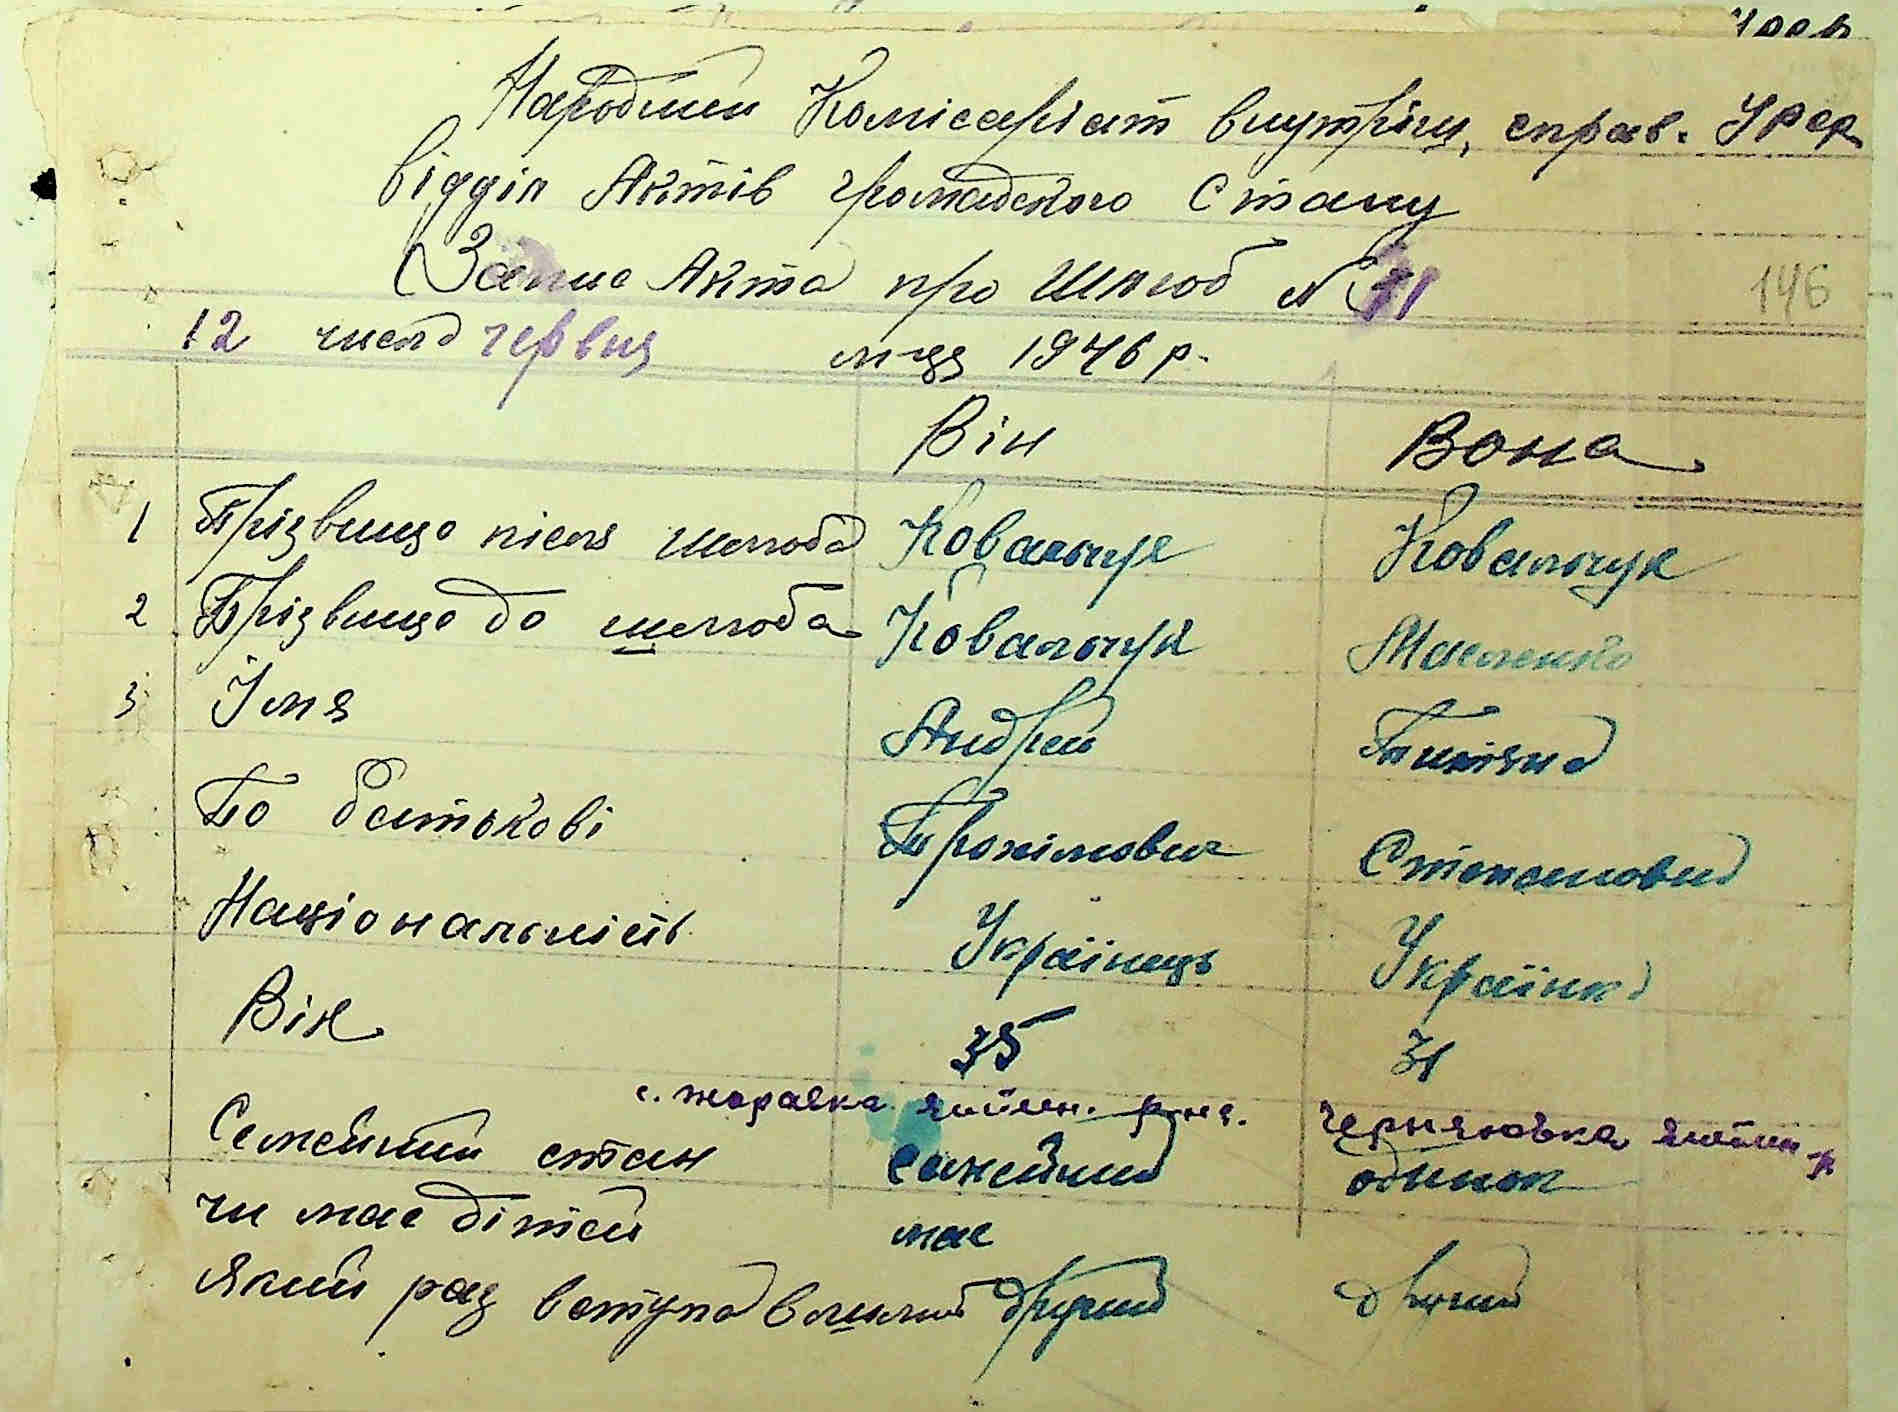 Народний Комісаріат внутріш, справ. УРСР
відділ Актів громадского Стану
Запис Акта про Шлюб №
12 числа червця м-ця 1946 р.
146
Він Вона
1 Прізвище після шлюба Ковальчук Ковальчук
2 Прізвище до шлюба Ковальчук Масленко
3 Імя Андрей
По батькові Прохімович Степановна
Національність Українець Українка
Вік 35 31
с. Жоравка яготин. р-на. Черняховка яготин р
Семейний стан семейний одинок
чи має дітей має
Який раз вступа в другий другий